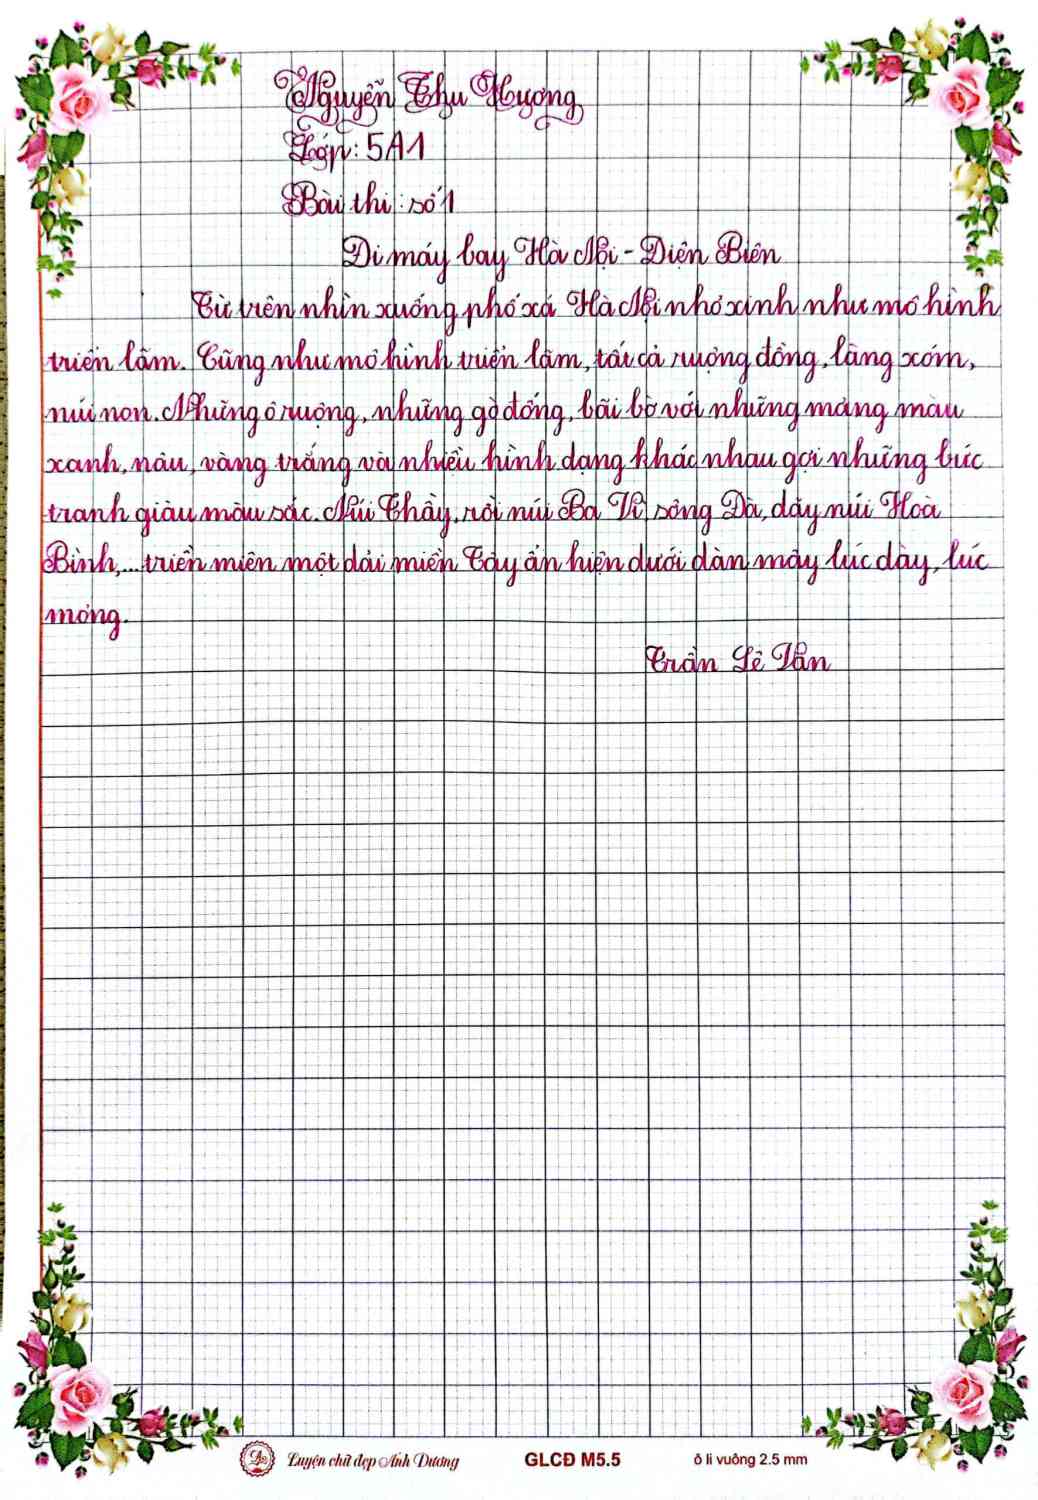 Nguyễn Thu Hương
Lớp: 5A1
Bài thi: số 1
Đi máy bay Hà Nội - Điện Biên
Từ trên nhìn xuống phố xá Hà Nội nhỏ xinh như mô hình
triển lãm. Cũng như mô hình triển lãm, tất cả ruộng đồng, làng xóm,
núi non. Những ô ruộng, những gò đống, bãi bờ với những mảng màu
xanh, nâu, vàng trắng và nhiều hình dạng khác nhau gợi những bức
tranh giàu màu sắc. Núi Thầy, rồi núi Ba Vì, sông Đà, dãy núi Hoà
Bình,... triền miên một dải miền Tây ẩn hiện dưới làn mây lúc dày, lúc
mỏng.
Trần Lê Văn
Luyện chữ đẹp Ánh Dương
GLCĐ M5.5
ô li vuông 2.5 mm